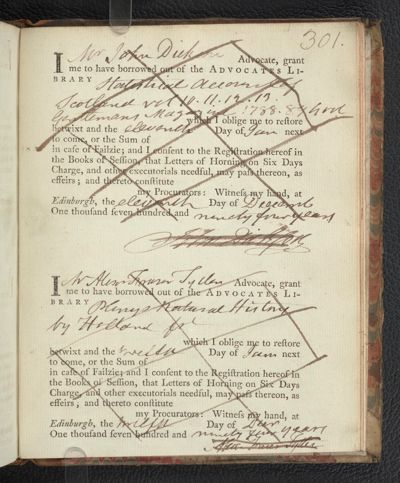 301.
I Mr John Dickson Advocate, grant
me to have borrowed out of the ADVOCATES LI-
BRARY Statistical Account of
Scotland vol 10. 11. 12. 13.
Gentlemans Mag 1788.
which I oblige me to restore
betwixt and the eleventh Day of Jan next
to come, or the Sum of
in case of Failzie; and I consent to the Registration hereof in
the Books of Session, that Letters of Horning on Six Days
Charge, and other executorials needful, may pass thereon, as
effeirs; and thereto constitute
my Procurators: Witness my hand, at
Edinburgh, the eleventh Day of Decemb
One thousand seven hundred and ninety four years
I Mr Alexr Fraser Tytler Advocate, grant
me to have borrowed out of the ADVOCATES LI-
BRARY Plenys Natural History
by Holland fo
which I oblige me to restore
betwixt and the twelfth Day of Jan next
to come, or the Sum of
in case of Failzie; and I consent to the Registration hereof in
the Books of Session, that Letters of Horning on Six Days
Charge, and other executorials needful, may pass thereon, as
effeirs; and thereto constitute
my Procurators: Witness my hand, at
Edinburgh, the twelfth Day of Decr
One thousand seven hundred and ninety four years
Alexr Fraser Tytler